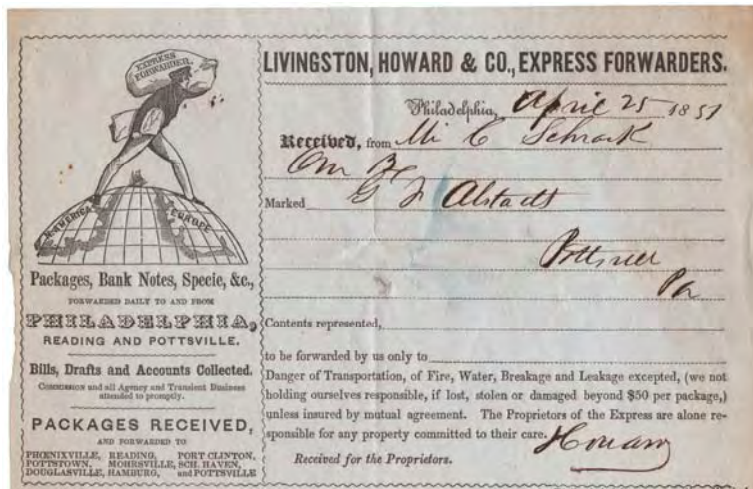 EXPRESS
FORWARDER.
N. AMERICA
EUROPE
Packages, Bank Notes, Specie, &c.,
FORWARDED DAILY TO AND FROM
PHILADELPHIA,
READING AND POTTSVILLE.
Bills, Drafts and Accounts Collected.
COMMISSION and all Agency and Transient Business
attended to promptly.
PACKAGES RECEIVED,
AND FORWARDED TO
PHŒNIXVILLE, READING, PORT CLINTON,
POTTSTOWN, MOHRSVILLE, SCH. HAVEN,
DOUGLASVILLE, HAMBURG, and POTTSVILLE
LIVINGSTON, HOWARD & CO., EXPRESS FORWARDERS.
Philadelphia, April 25 1851
Received, from C Schrack
One
Marked G Alstadt
Pottsville
Pa
Contents represented,
to be forwarded by us only to
Danger of Transportation, of Fire, Water, Breakage and Leakage excepted, (we not
holding ourselves responsible, if lost, stolen or damaged beyond $50 per package,)
unless insured by mutual agreement. The Proprietors of the Express are alone re-
sponsible for any property committed to their care.
Howard
Received for the Proprietors.